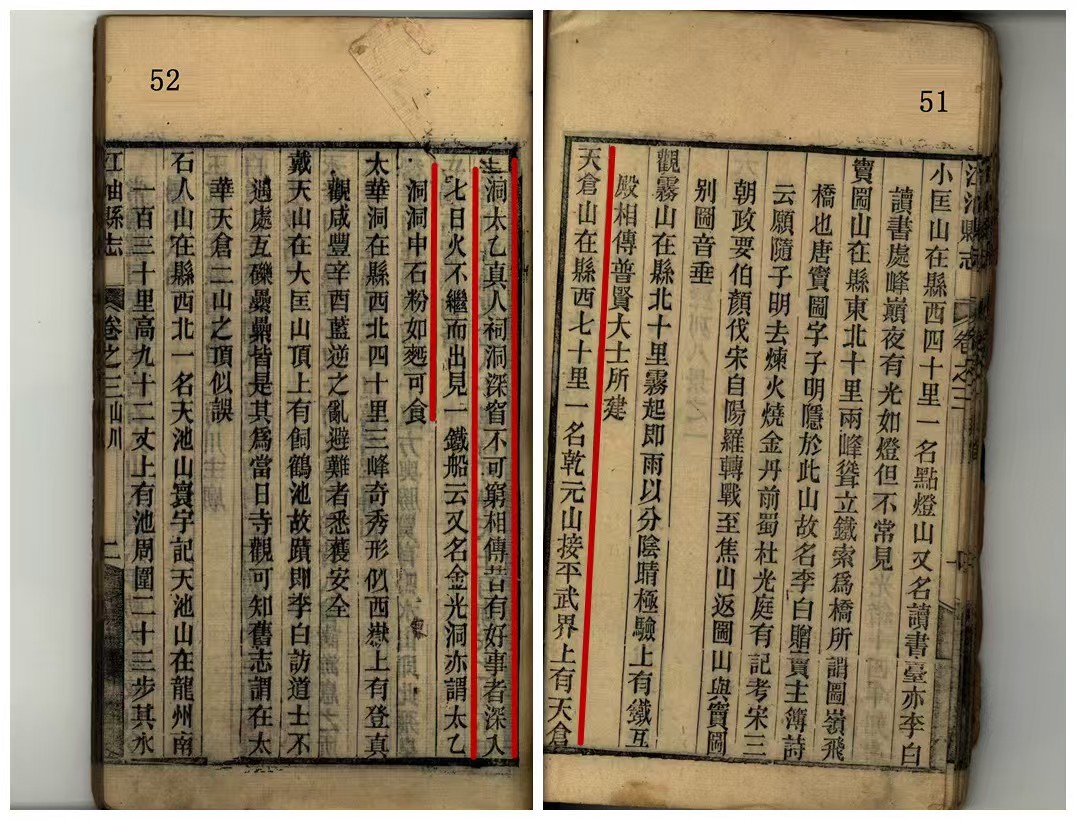 51
江油縣志 卷之三
小匡山在縣西四十里一名點燈山又名讀書臺亦李白
讀書處峰巔夜有光如燈但不常見
竇圌山在縣東北十里兩峰聳立鐵索爲橋所謂圌嶺飛
橋也唐竇圌字子明隱於此山故名李白贈竇主簿詩
云願隨子明去煉火燒金丹前蜀杜光庭有記考宋三
朝政要伯顏伐宋自陽羅轉戰至焦山返圌山與竇圌
別圌音垂
觀霧山在縣北十里霧起即雨以分陰晴極驗上有鐵瓦
殿相傳普賢大士所建
天倉山在縣西七十里一名乾元山接平武界上有天倉
52
洞太乙真人祠洞深窅不可窮相傳昔有好事者深入
七日火不繼而出見一鐵船云又名金光洞亦謂太乙
洞洞中石粉如麪可食
太華洞在縣西北四十里三峰奇秀形似西嶽上有登真
觀咸豐辛酉藍逆之亂避難者悉獲安全
戴天山在大匡山頂上有飼鶴池故蹟即李白訪道士不
遇處瓦礫纍纍皆是其爲當日寺觀可知舊志謂在太
華天倉二山之頂似誤
石人山在縣西北一名天池山寰宇記天池山在龍州南
一百三十里高九十二丈上有池周圍二十三步其水
江油縣志 卷之三 山川 二